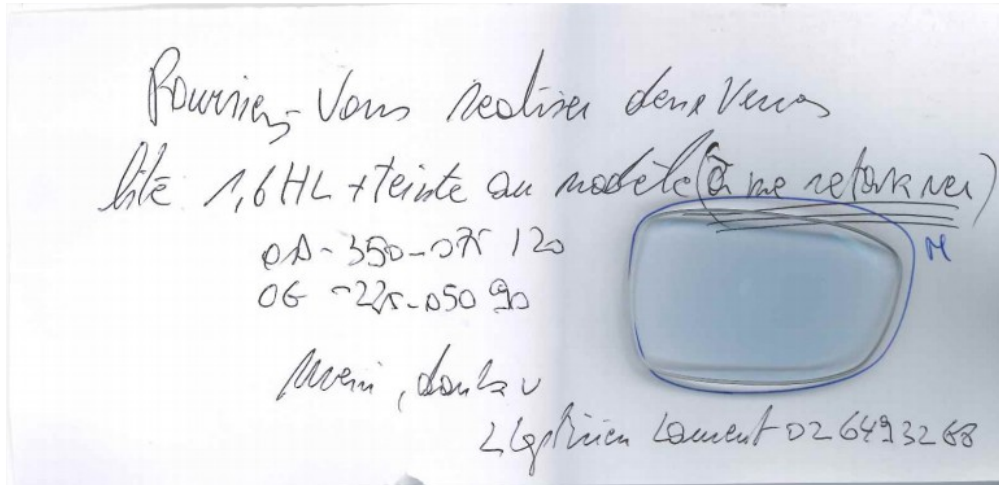 Pourriez-Vous realiser deux Verres
lite 1,6 HL + teinte au modèle (à me retourner)
OD - 350 - 075 120
OG - 225 - 050 90
M
Merci,
Laurent 02 6493268